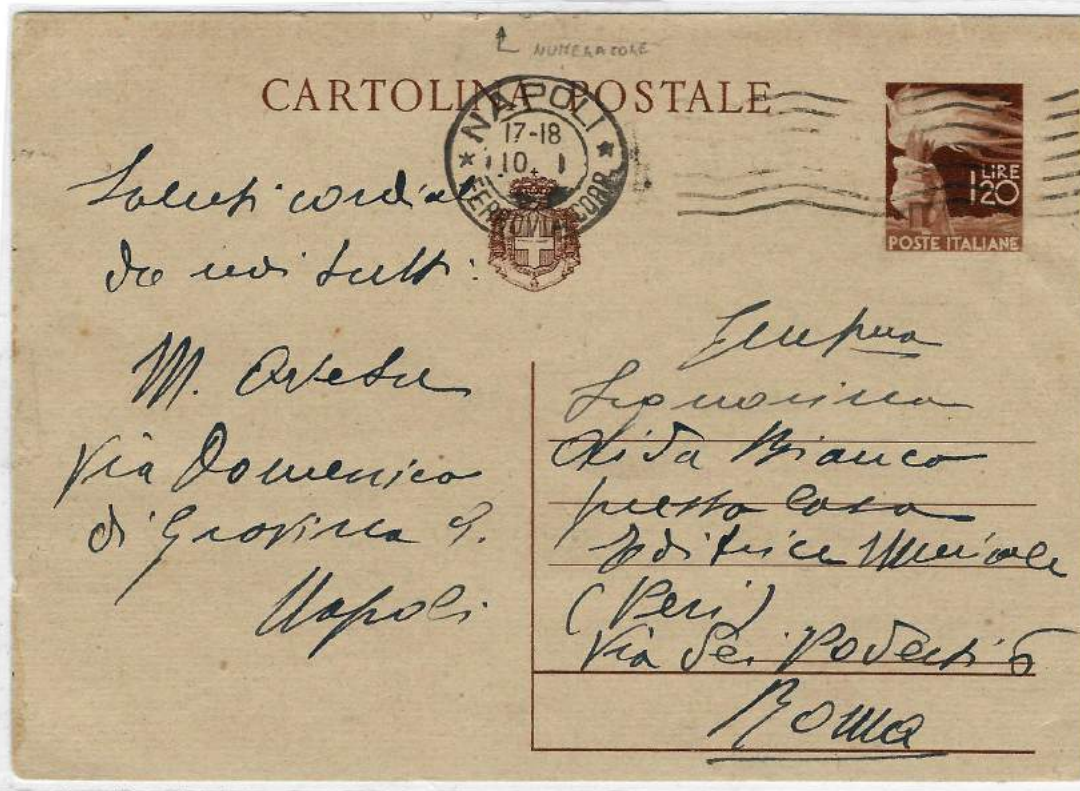 NUMERATORE
CARTOLINA POSTALE
NAPOLI
17-18
10. 1
FERROVIA CORR.
LIRE
1 20
POSTE ITALIANE
Saluti cordiali
da noi tutti:
M.
Via Domenico
di Gravina 9.
Napoli
Signorina
Aida Bianco
presso Casa
Editrice Musicale
(Peri)
Via dei Podesti 6
Roma